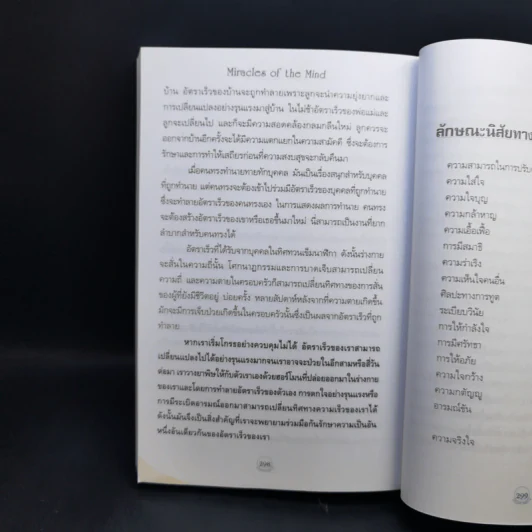 Miracles of the Mind
บ้าน อัตราเร็วของบ้านจะถูกทำลายเพราะลูกจะนำความยุ่งยากและ
การเปลี่ยนแปลงอย่างรุนแรงมาสู่บ้าน ในไม่ช้าอัตราเร็วของพ่อแม่และ
ลูกจะเปลี่ยนไป และก็จะมีความสอดคล้องกลมกลืนใหม่ ลูกควรจะ
ออกจากบ้านอีกครั้งจะได้มีความแตกแยกในความสามัคคี ซึ่งจะต้องการ
รักษาและการทำให้เสถียรก่อนที่ความสงบสุขจะกลับคืนมา
เมื่อคนทรงทำนายทายทักบุคคล มันเป็นเรื่องสนุกสำหรับบุคคล
ที่ถูกทำนาย แต่คนทรงจะต้องเข้าไปร่วมมีอัตราเร็วของบุคคลที่ถูกทำนาย
ซึ่งจะทำลายอัตราเร็วของคนทรงเอง ในการแสดงผลการทำนาย คนทรง
จะต้องสร้างอัตราเร็วของเขาหรือเธอขึ้นมาใหม่ นี่สามารถเป็นงานที่ยาก
ลำบากสำหรับคนทรงได้
อัตราเร็วที่ได้รับจากบุคคลในทิศทวนเข็มนาฬิกา ดังนั้นร่างกาย
จะสั่นในความถี่นั้น โศกนาฏกรรมและการบาดเจ็บสามารถเปลี่ยน
ความถี่ และความตายในครอบครัวก็สามารถเปลี่ยนทิศทางของการสั่น
ของผู้ที่ยังมีชีวิตอยู่ บ่อยครั้ง หลายสัปดาห์หลังจากที่ความตายเกิดขึ้น
มักจะมีการเจ็บป่วยเกิดขึ้นในครอบครัวนั้นซึ่งเป็นผลจากอัตราเร็วที่ถูก
ทำลาย
หากเราเริ่มโกรธอย่างควบคุมไม่ได้ อัตราเร็วของเราสามารถ
เปลี่ยนแปลงไปได้อย่างรุนแรงมากจนเราอาจจะป่วยในอีกสามหรือสี่วัน
ต่อมา เราวางยาพิษให้กับตัวเราเองด้วยฮอร์โมนที่ปล่อยออกมาในร่างกาย
ของเราและโดยการทำลายอัตราเร็วของตัวเอง การตกใจอย่างรุนแรงหรือ
การมีระเบิดอารมณ์ออกมาสามารถเปลี่ยนทิศทางความเร็วของเราได้
ดังนั้นมันจึงเป็นสิ่งสำคัญที่เราจะพยายามร่วมมือกันรักษาความเป็นอัน
หนึ่งอันเดียวกันของอัตราเร็วของเรา
ลักษณะนิสัยทาง
ความสามารถในการปรับ
ความใส่ใจ
ความใจบุญ
ความกล้าหาญ
ความเอื้อเฟื้อ
การมีสมาธิ
ความร่าเริง
ความเห็นใจคนอื่น
ศิลปะทางการทูต
ระเบียบวินัย
การให้กำลังใจ
การมีศรัทธา
การให้อภัย
ความใจกว้าง
ความกตัญญู
อารมณ์ขัน
ความจริงใจ